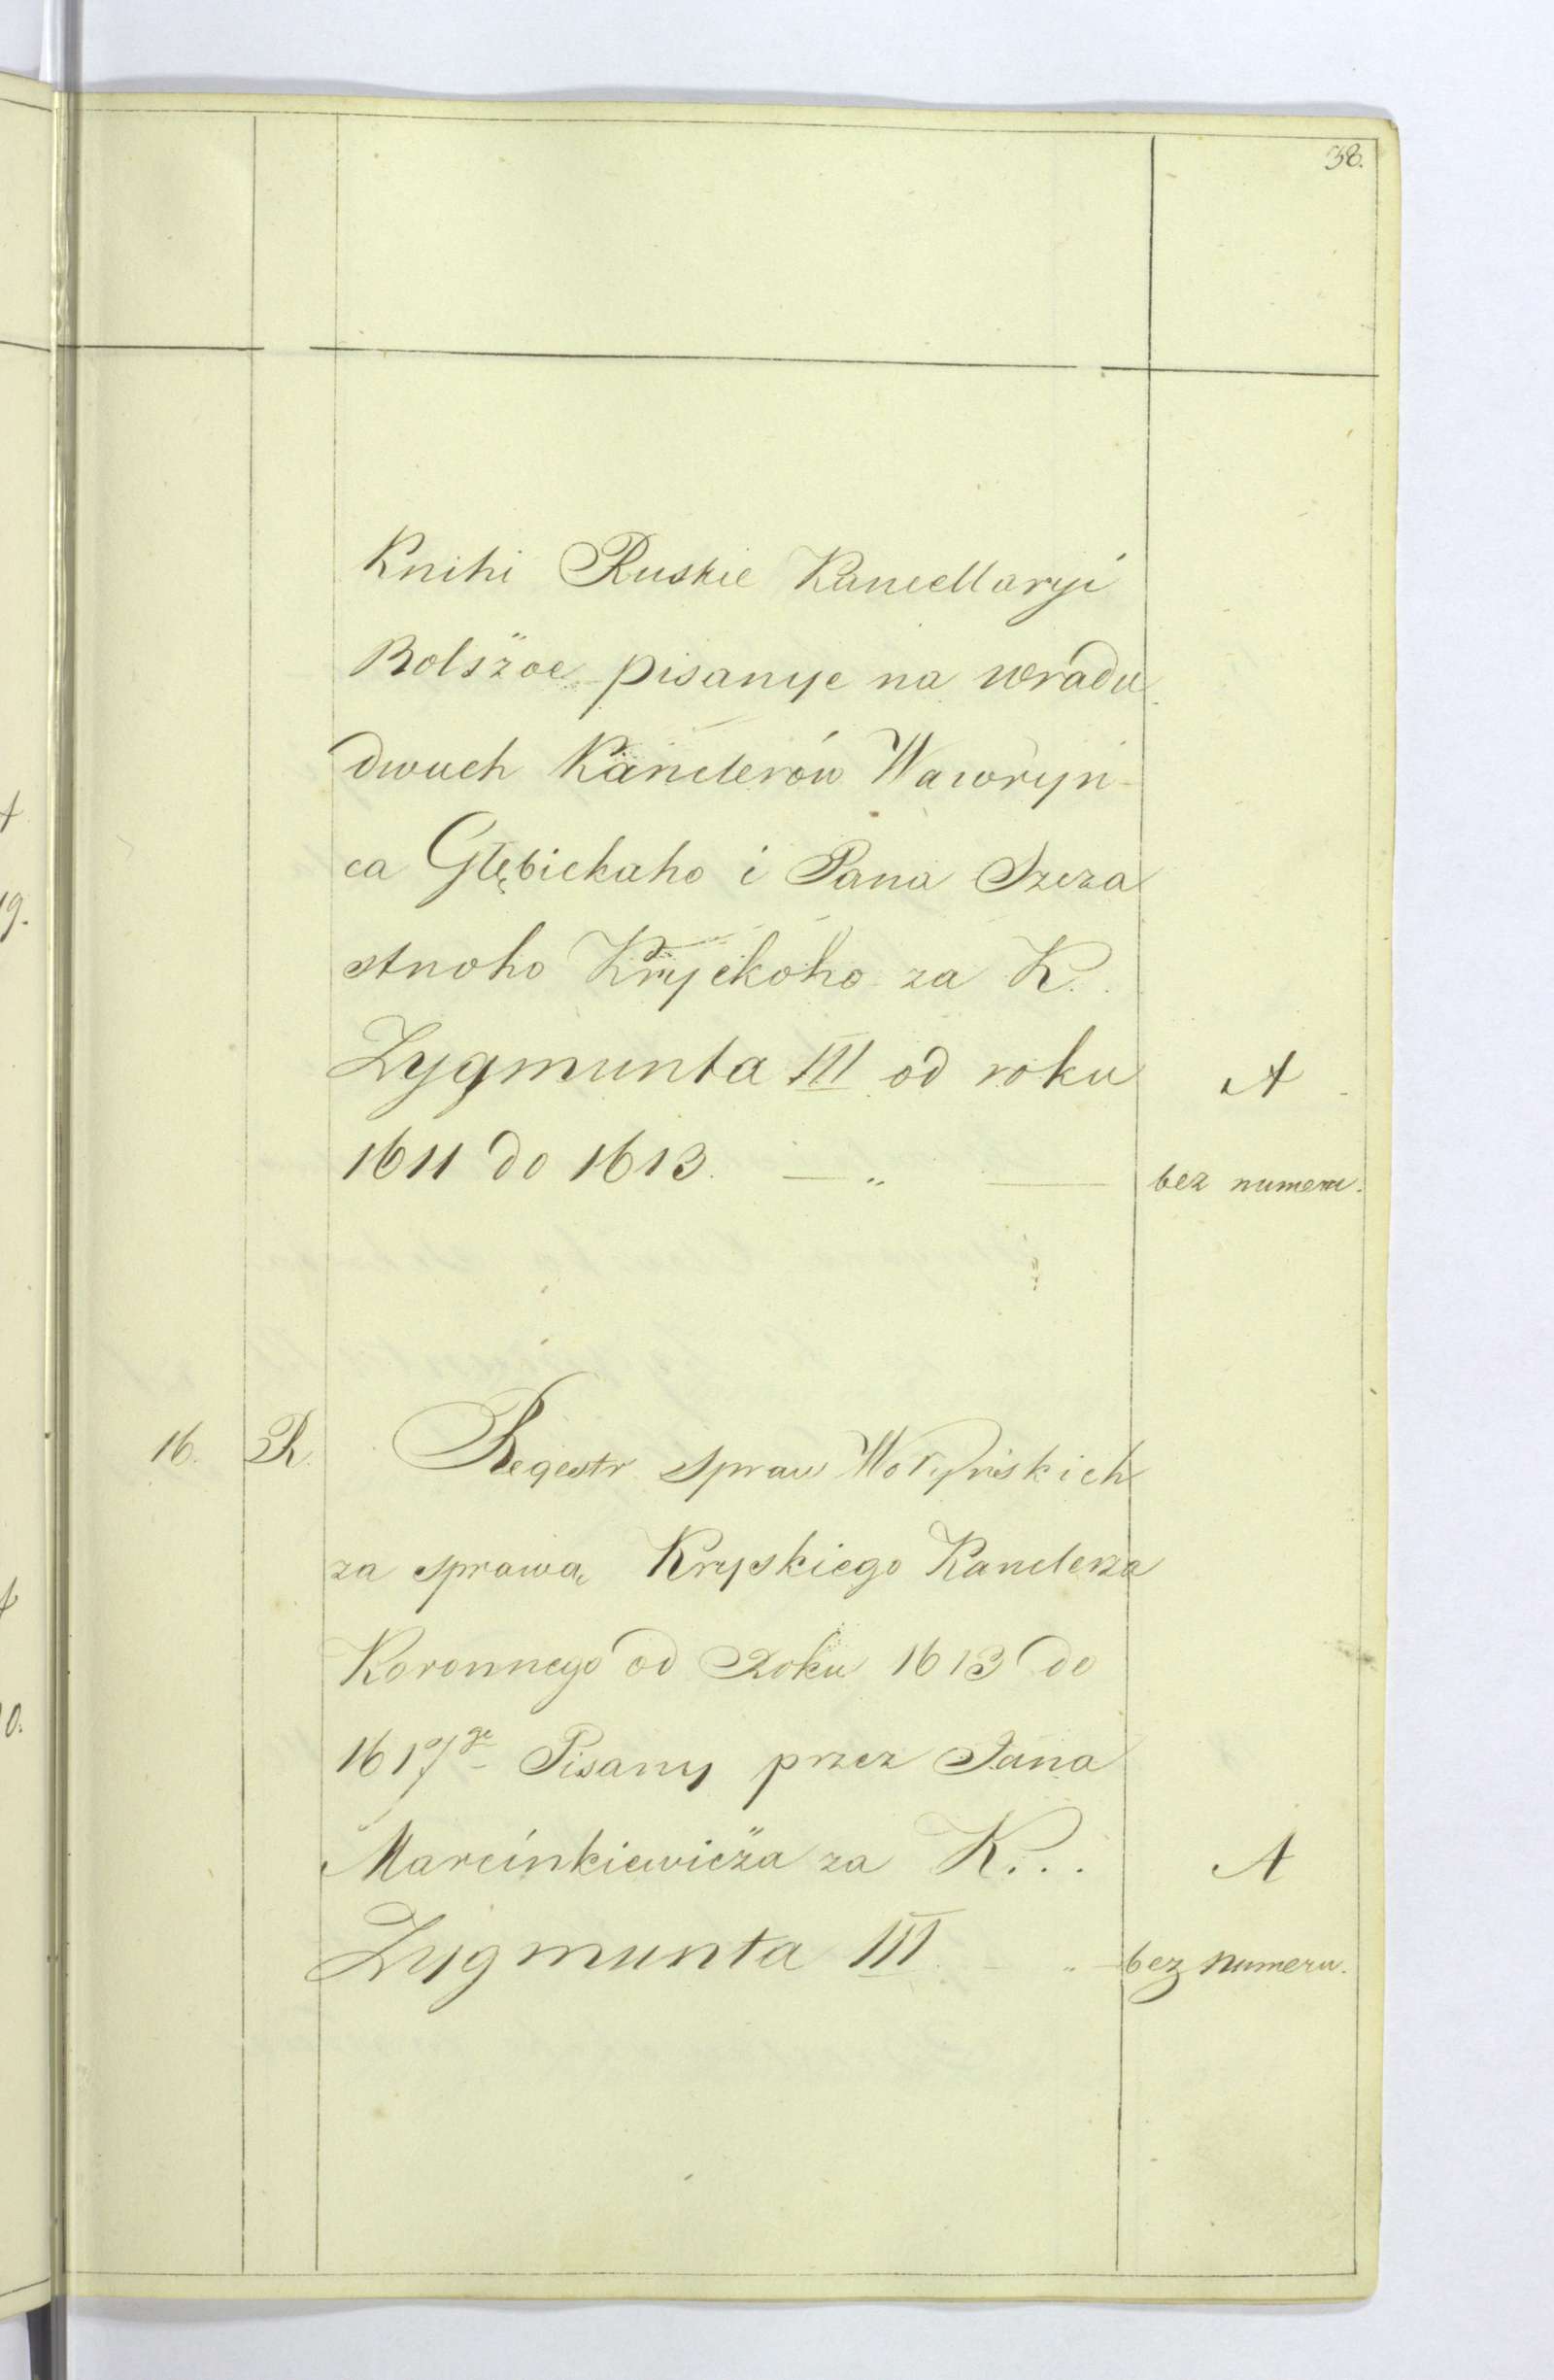 38.
Knihi Ruskie Kancellaryi
Bolszoe pisanye na wradu
dwuch Kanclerów Wawryń-
ca Głębickaho i Pana Szcza
stnoho Kryckoho za K.
Zygmunta III od roku A
1611 do 1613. — „ — bez numeru.
16. R. Regestr spraw Wołyńskich
za sprawą Kryskiego Kanclerza
Koronnego od Roku 1613 do
1617go Pisany przez Jana
Marcinkiewicza za K... A
Zygmunta III - „ - bez numeru.